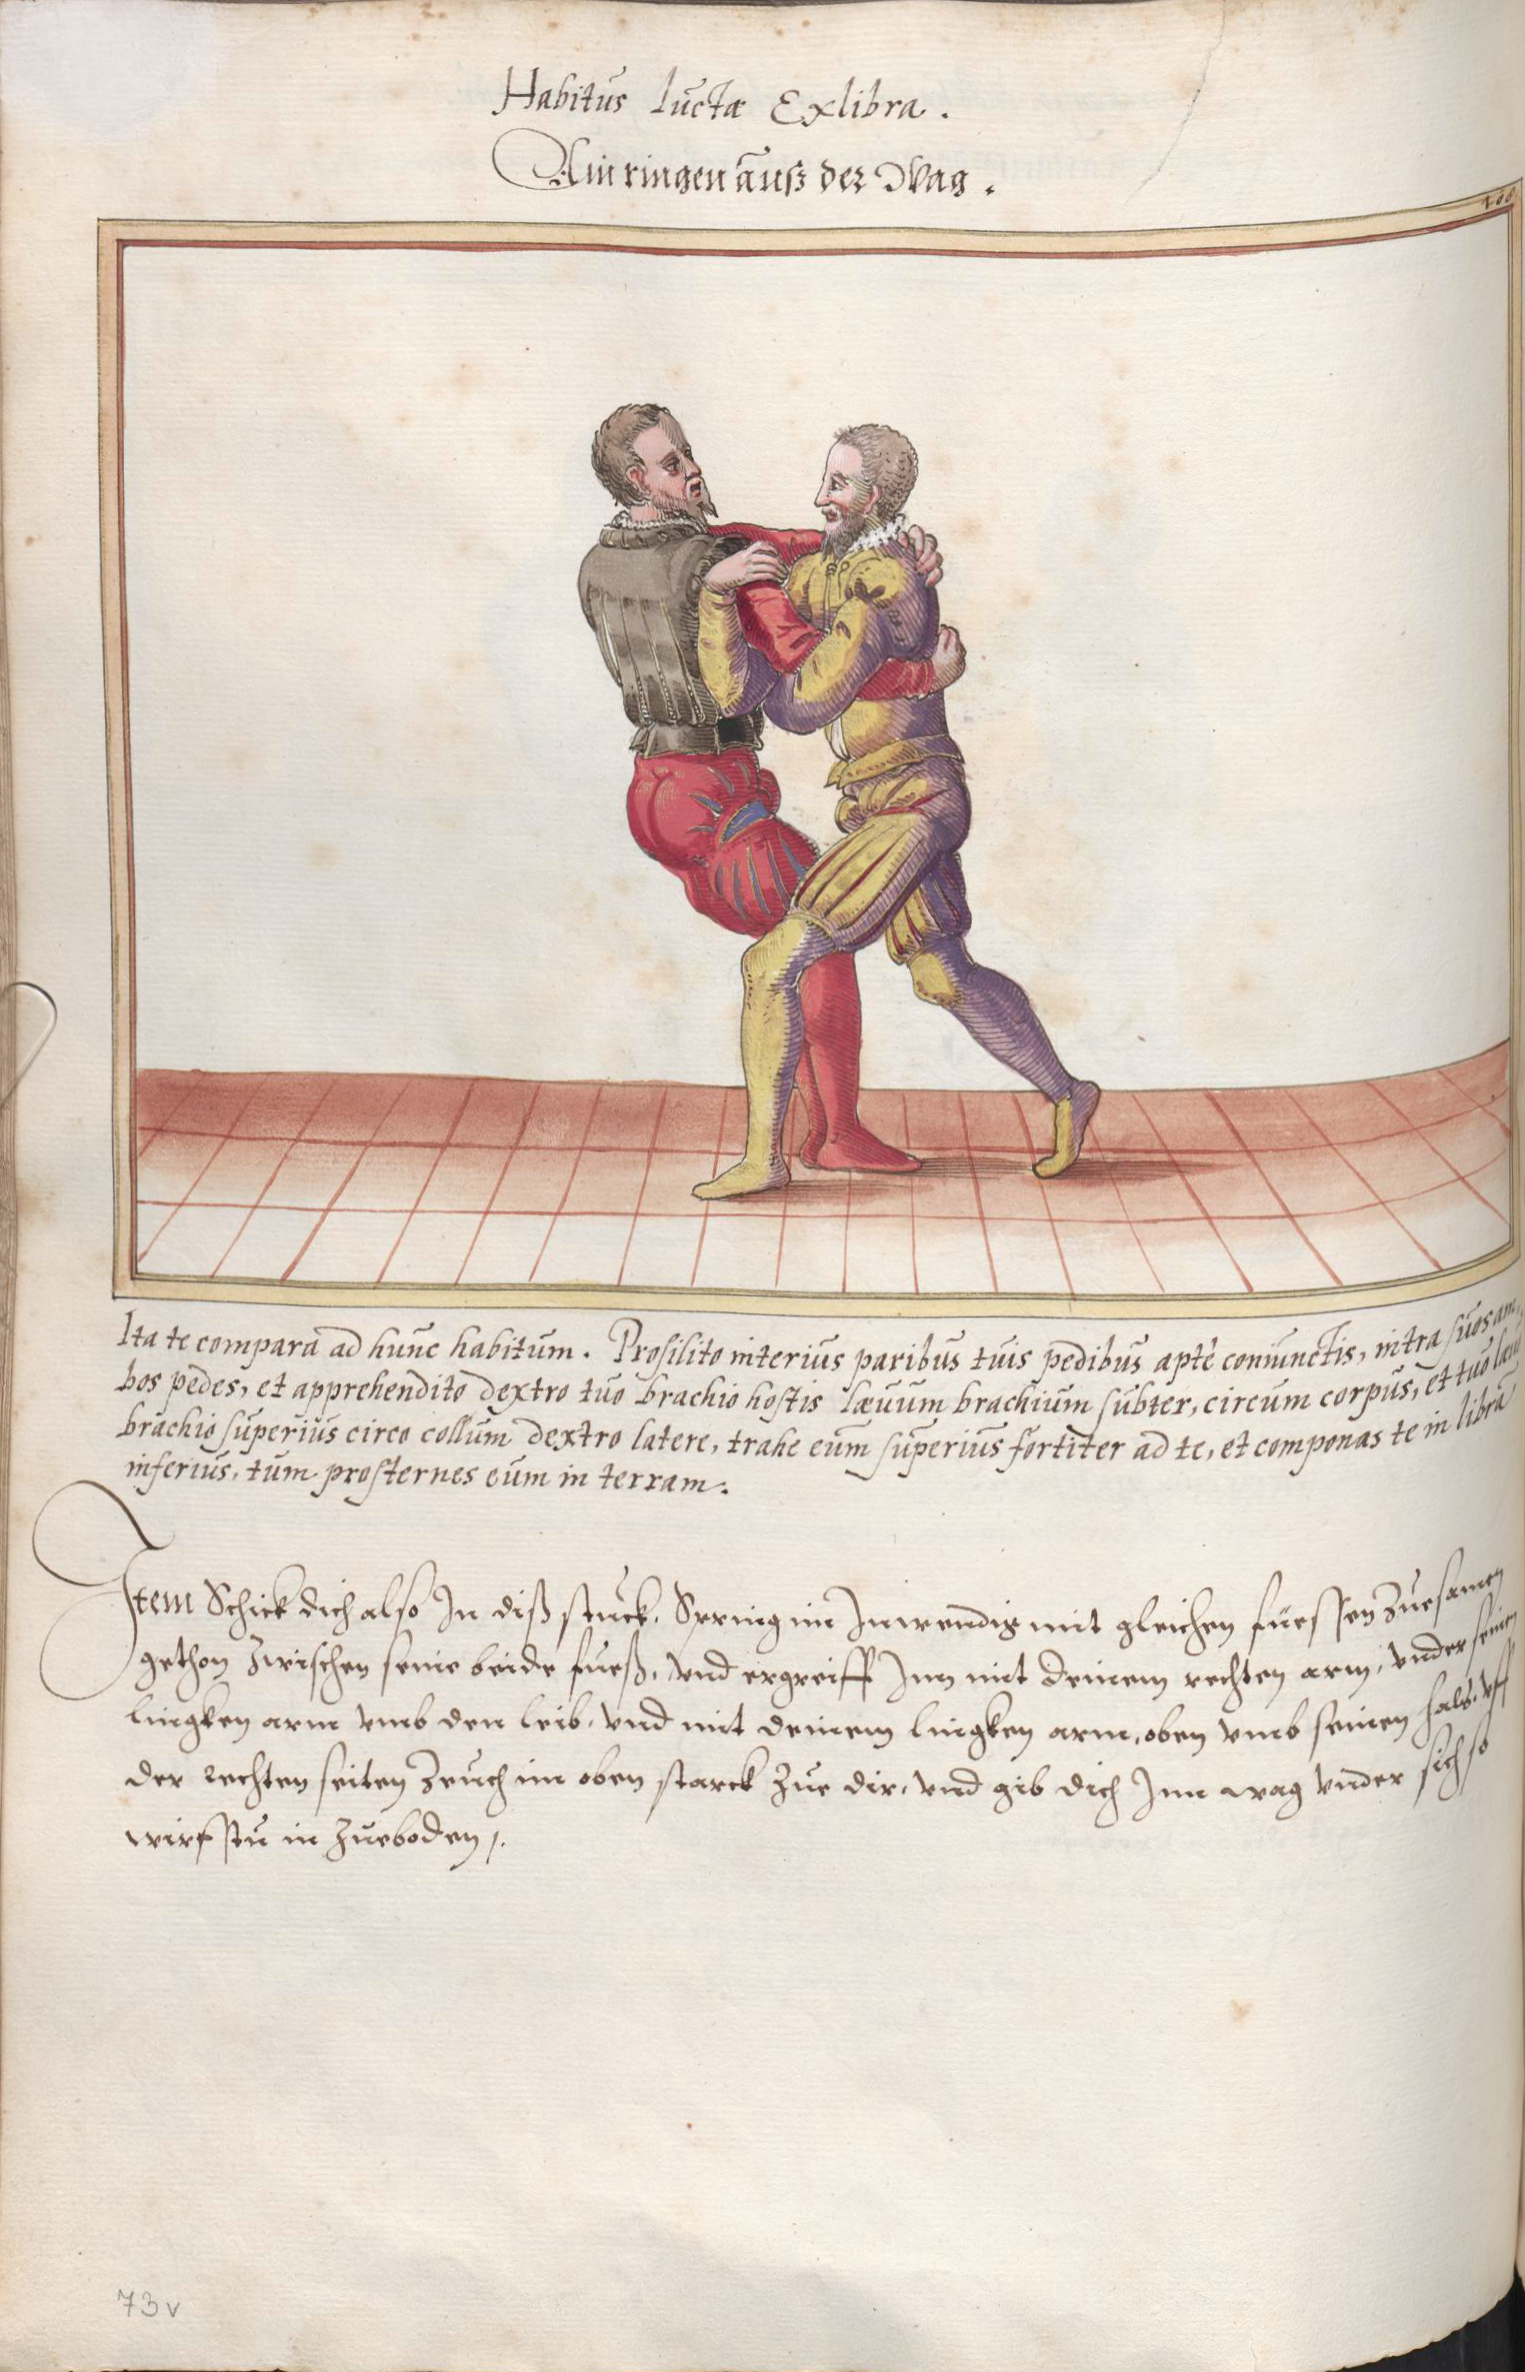 Habitus luctæ Exlibra.
Ain ringen auß der Wag.
Ita te compara ad hunc habitum. Prosilito interius paribus tuis pedibus aptè coniunctis, intra suos am,
bos pedes, et apprehendito dextro tuo brachio hostis lævum brachium subter, circum corpus, et tuo lævo
brachio superius circo collum dextro latere, trahe eum superius fortiter ad te, et componas te in librã
inferius, tum prosternes eum in terram.
Item Schick dich also In diß stuck, Spring im Inwendig mit gleichen füessen Zuesamen
gethon Zwischen seine beide fueß, vnd ergreiff Inn mit deinem rechten arm, vnder seinen
lingken arm vmb den leib, vnd mit deinem lingken arm, oben vmb seinen hals, vff
der rechten seiten Zeuch im oben starck Zue dir, vnd gib dich Inn wag vnder sich so
wirfstu in Zueboden,.
73v